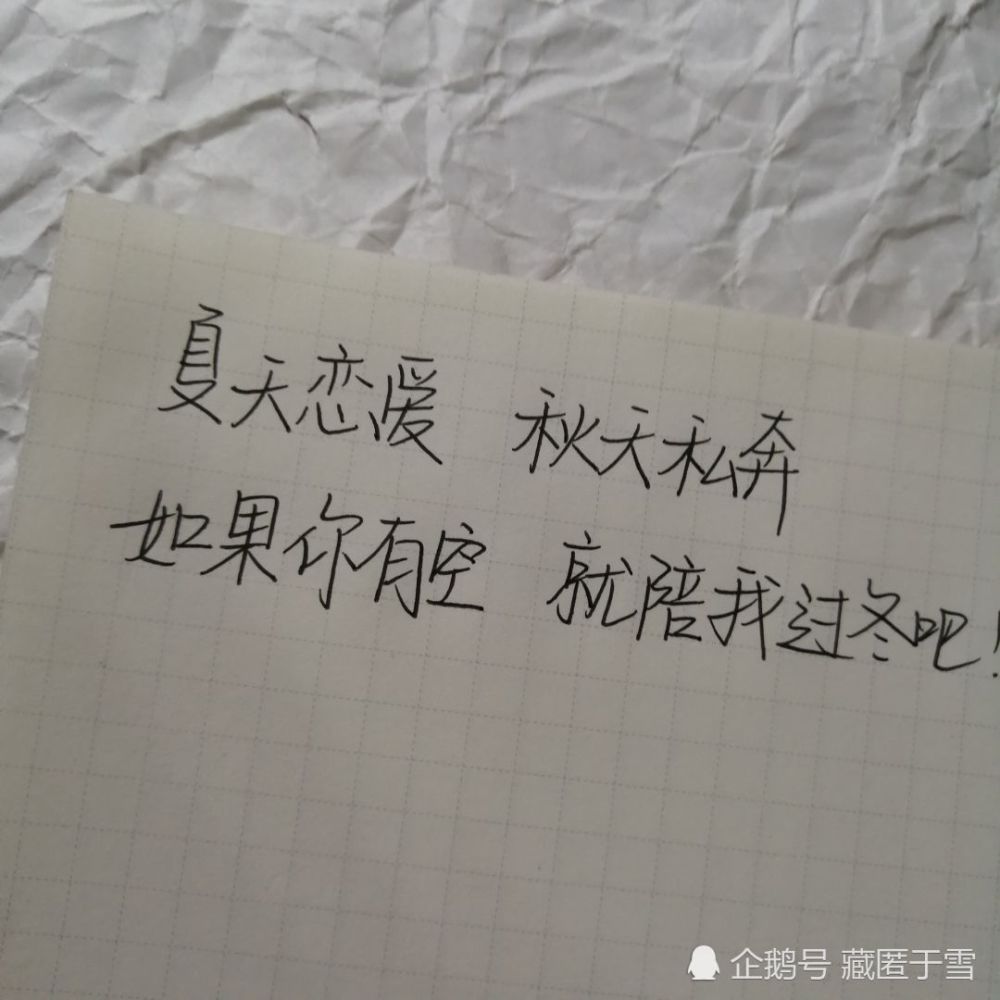 夏天恋爱 秋天私奔
如果你有空 就陪我过冬吧！
企鹅号 藏匿于雪